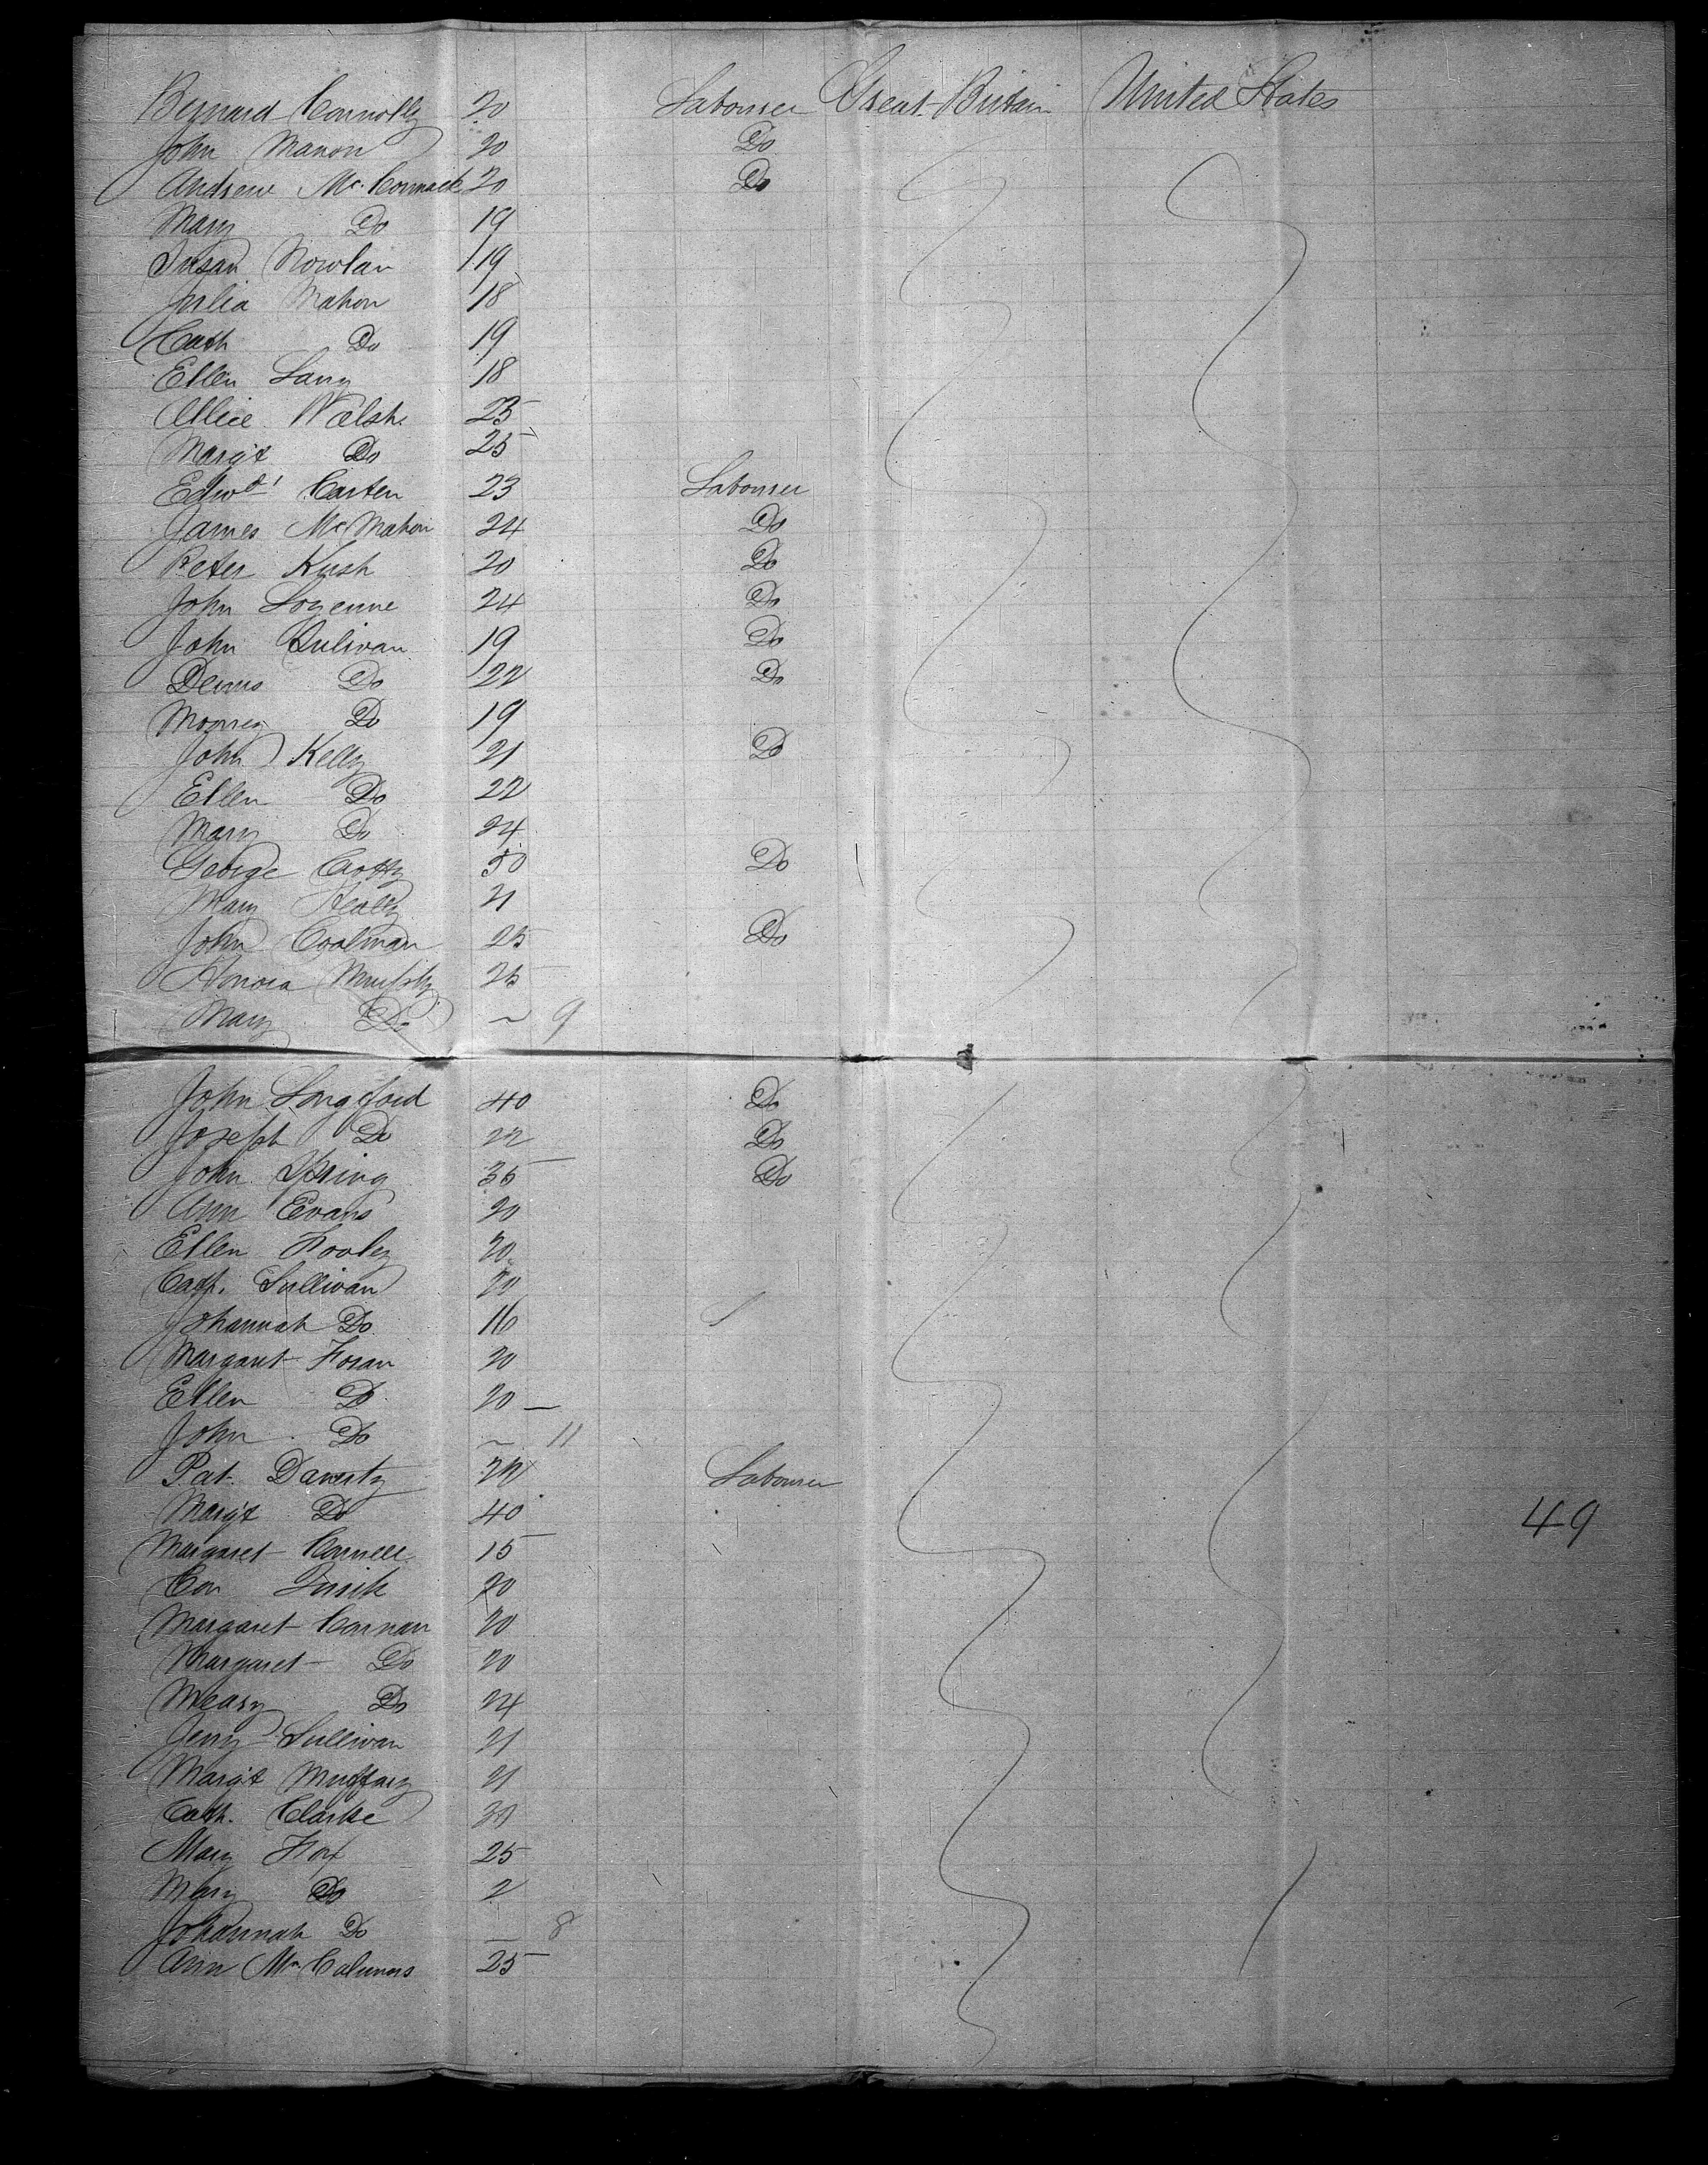 Bernard Connolly 20 Labourer Great Britain United States
John Manon 20 Do
Andrew Mc. Cormack 20 Do
Mary Do 19
Susan Nowlan 19
Julia Mahon 18
Cath Do 19
Ellen Lang 18
Allice Walsh. 23
Margt Do 25
Edwd Carten 23 Labourer
James McMahon 24 Do
Peter Kush 20 Do
John 24 Do
John Sulivan 19 Do
Dennis Do 22 Do
Do 19
John Kelly 21 Do
Ellen Do 22
Mary Do 24
George 50 Do
Mary Healy 21
John Coolman 25 Do
Honora Murphy 25
Mary Do ~ 9
John Longford 40 Do
Joseph Do 22 Do
John Spring 35 Do
Ann Evans 20
Ellen Hooley 20
Cath. Sullivan 20
Johannah Do 16
Margaret Foran 20
Ellen Do 20
John Do ~ 11
Pat. 20 Labourer
Margt Do 40 49
Margaret Connell 15
Con 20
Margaret Cornan 20
Margaret Do 20
Meary Do 24
Jerry Sullivan 21
Margt 21
Cath. Clarke 30
Mary Fox 25
Mary Do 2
Johannah Do — 8
Ann 25